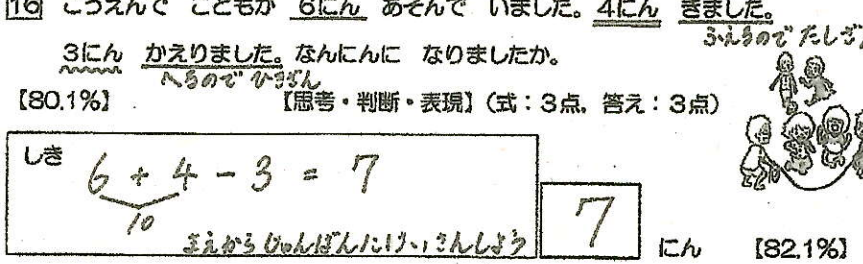 16 こうえんで こどもが 6にん あそんで いました。4にん きました。
ふえるので たしざん
3にん かえりました。なんにんに なりましたか。
へるので ひきざん
【80.1%】 【思考・判断・表現】(式:3点，答え:3点)
しき 6 + 4 - 3 = 7
10
まえから じゅんばんに けいさんしよう
7 にん 【82.1%】